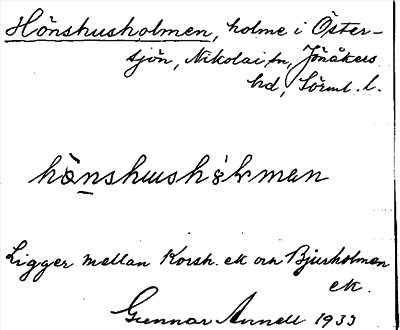 Hönshusholmen, holme i Öster-
sjön, Nikolai sn, Jönåkers
hd, Sörml. l.
hönshusholman
Ligger mellan Korsh. ek och Bjurholmen
ek.
Gunnar Annell 1933